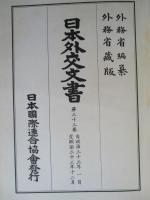 外務省編纂
外務省藏版
日本外交文書
第三十三卷
自明治三十三年一月
至明治三十三年十二月
日本國際連合協會發行